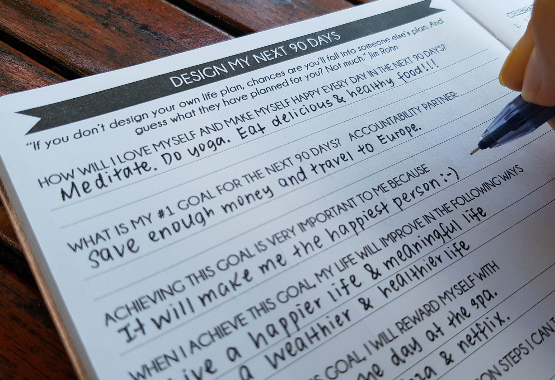 CELEBR
DESIGN MY NEXT 90 DAYS
"If you don't design your own life plan, chances are you'll fall into someone else's plan. And
guess what they have planned for you? Not much." Jim Rohn
HOW WILL I LOVE MYSELF AND MAKE MYSELF HAPPY EVERY DAY IN THE NEXT 90 DAYS?
Meditate. Do yoga. Eat delicious & healthy food!!!
WHAT IS MY #1 GOAL FOR THE NEXT 90 DAYS? ACCOUNTABILITY PARTNER
Save enough money and travel to Europe.
ACHIEVING THIS GOAL IS VERY IMPORTANT TO ME BECAUSE
It will make me the happiest person :-)
WHEN I ACHIEVE THIS GOAL, MY LIFE WILL IMPROVE IN THE FOLLOWING WAYS
ive a happier life & meaningful life
a wealthier & healthier life
IS GOAL I WILL REWARD MYSELF WITH
me day at the spa.
za & netflix.
ON STEPS I CAN T